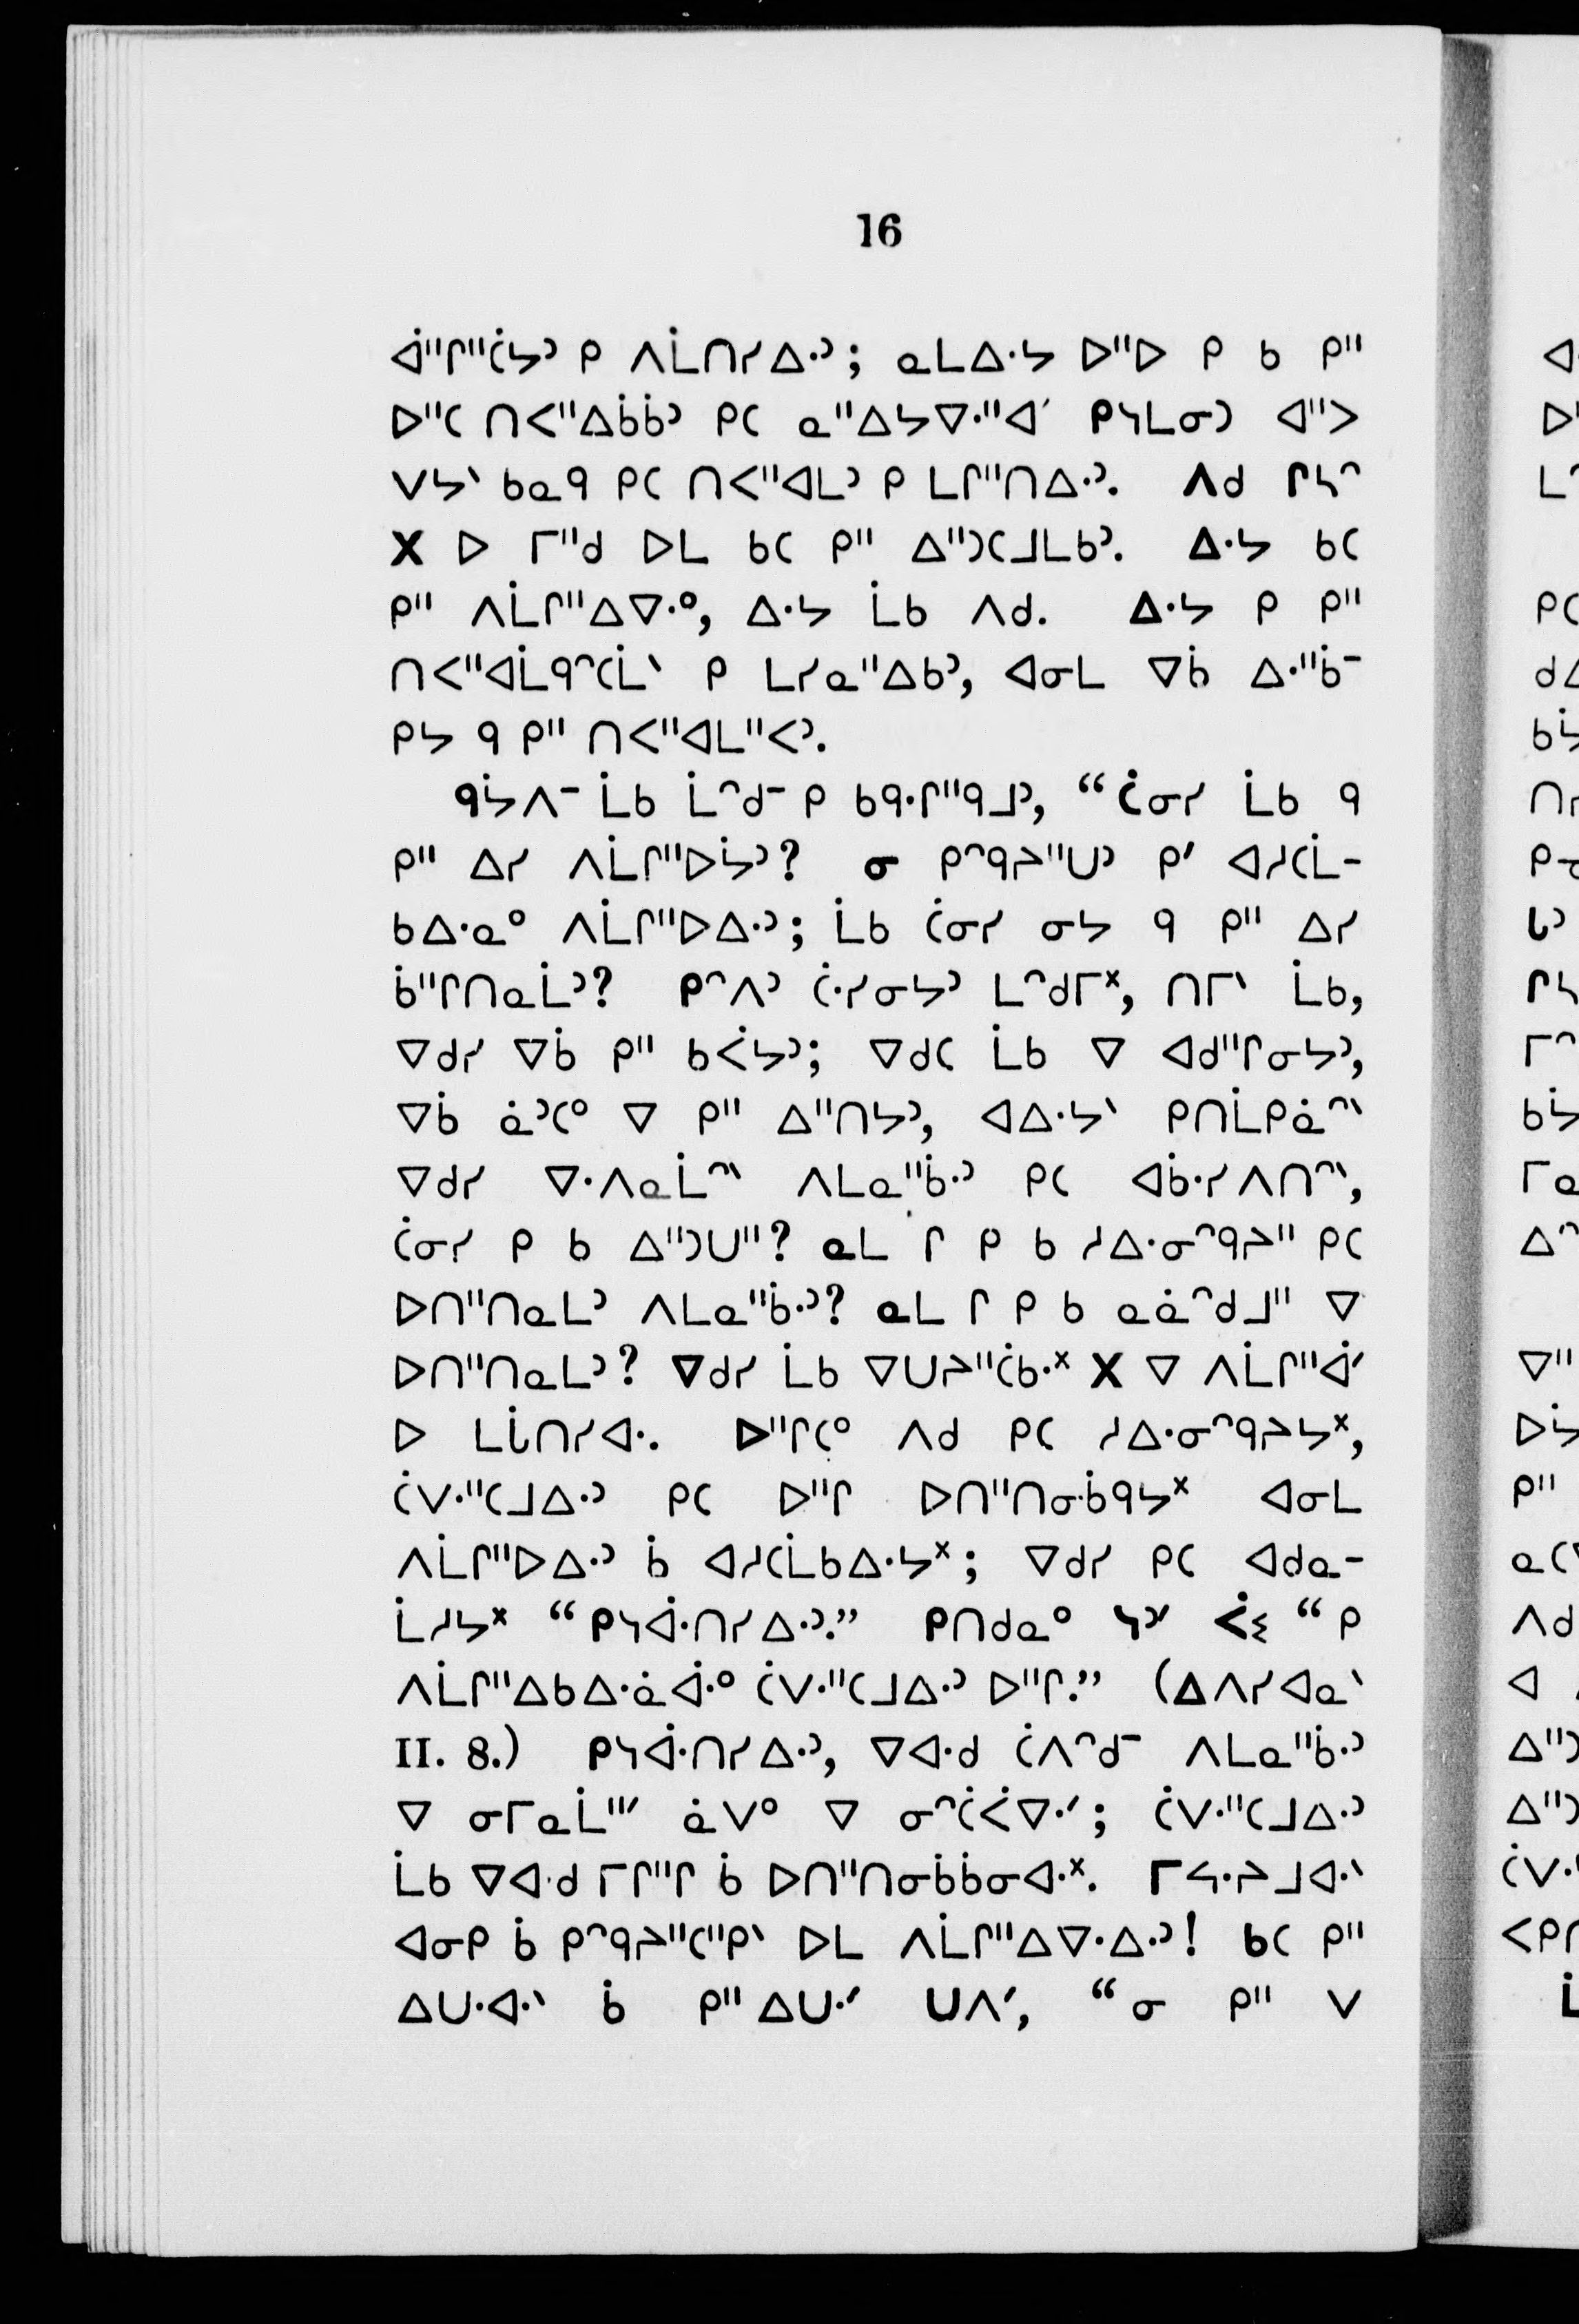 16
ᐋᐦᒋᐦᑖᔭᐣ ᑭ ᐱᒫᑎᓯᐏᐣ; ᓇᒪᐏᔭ ᐅᐦᐅ ᑭ ᑲ ᑭᐦ
ᐅᐦᑕ ᑎᐸᐦᐃᑳᑳᐣ ᑭᑕ ᓇᐦᐃᔭᐍᐦᐊᐟ ᑭᓭᒪᓂᑐ ᐊᐦᐳ
ᐯᔭᐠ ᑲᓇᑫ ᑭᑕ ᑎᐸᐦᐊᒪᐣ ᑭ ᒪᒋᐦᑎᐏᐣ. ᐱᑯ ᒋᓴᐢ
X ᐅ ᒥᐦᑯ ᐅᒪ ᑲᑕ ᑭᐦ ᐃᐦᑐᑕᒧᒪᑲᐣ. ᐏᔭ ᑲᑕ
ᑭᐦ ᐱᒫᒋᐦᐃᐍᐤ, ᐏᔭ ᒫᑲ ᐱᑯ. ᐏᔭ ᑭ ᑭᐦ
ᑎᐸᐦᐊᒫᑫᐢᑕᒫᐠ ᑭ ᒪᓯᓇᐦᐃᑲᐣ, ᐊᓂᒪ ᐁᑳ ᐑᐦᑳ-
ᑭᔭ ᑫ ᑭᐦ ᑎᐸᐦᐊᒪᐦᐸᐣ.
ᑫᔮᐱᐨ ᒫᑲ ᒫᐢᑯᐨ ᑭ ᑲᑵᒋᐦᑫᒧᐣ, “ᑖᓂᓯ ᒫᑲ ᑫ
ᑭᐦ ᐃᓯ ᐱᒫᒋᐦᐅᔮᐣ? ᓂ ᑭᐢᑫᔨᐦᑌᐣ ᑭᐟ ᐊᓱᑕᒫ-
ᑲᐏᓇᐤ ᐱᒫᒋᐦᐅᐏᐣ; ᒫᑲ ᑖᓂᓯ ᓂᔭ ᑫ ᑭᐦ ᐃᓯ
ᑳᐦᒋᑎᓇᒫᐣ? ᑭᐢᐱᐣ ᑖᐧᓯᓂᔭᐣ ᒪᐢᑯᒥᕽ, ᑎᒥᐠ ᒫᑲ,
ᐁᑯᓯ ᐁᑳ ᑭᐦ ᑲᐹᔭᐣ; ᐁᑯᑕ ᒫᑲ ᐁ ᐊᑯᐦᒋᓂᔭᐣ,
ᐁᑳ ᓈᐣᑕᐤ ᐁ ᑭᐦ ᐃᐦᑎᔭᐣ, ᐊᐏᔭᐠ ᑭᑎᒫᑭᓈᐢᐠ
ᐁᑯᓯ ᐍᐱᓇᒫᐢᐠ ᐱᒪᓇᐦᑳᐧᐣ ᑭᑕ ᐊᑳᐧᓯᐱᑎᐢᐠ,
ᑖᓂᓯ ᑭ ᑲ ᐃᐦᑐᑌᐦ? ᓇᒪ ᒋ ᑭ ᑲ ᓱᐏᓂᐢᑫᔨᐦ ᑭᑕ
ᐅᑎᐦᑎᓇᒪᐣ ᐱᒪᓇᐦᑳᐧᐣ? ᓇᒪ ᒋ ᑭ ᑲ ᓇᓈᐢᑯᒧᐦ ᐁ
ᐅᑎᐦᑎᓇᒪᐣ? ᐁᑯᓯ ᒫᑲ ᐁᑌᔨᐦᑖᑲᐧᕽ X ᐁ ᐱᒫᒋᐦᐋᐟ
ᐅ ᒪᒑᑎᓯᐊᐧ. ᐅᐦᒋᑕᐤ ᐱᑯ ᑭᑕ ᓱᐏᓂᐢᑫᔨᔭᕽ,
ᑖᐯᐧᐦᑕᒧᐏᐣ ᑭᑕ ᐅᐦᒋ ᐅᑎᐦᑎᓂᑳᑫᔭᕽ ᐊᓂᒪ
ᐱᒫᒋᐦᐅᐏᐣ ᑳ ᐊᓱᑕᒫᑲᐏᔭᕽ; ᐁᑯᓯ ᑭᑕ ᐊᑯᓇ-
ᒫᓱᔭᕽ “ᑭᓭᐚᑎᓯᐏᐣ.” ᑭᑎᑯᓇᐤ ᓭᐣᐟ ᐹᓬ “ᑭ
ᐱᒫᒋᐦᐃᑲᐏᓈᐚᐤ ᑖᐯᐧᐦᑕᒧᐏᐣ ᐅᐦᒋ.” (ᐃᐱᓯᐊᓇᐠ
II. 8.) ᑭᓭᐚᑎᓯᐏᐣ, ᐁᐊᐧᑯ ᑖᐱᐢᑯᐨ ᐱᒪᓇᐦᑳᐧᐣ
ᐁ ᓂᒥᓇᒫᐦᐟ ᓈᐯᐤ ᐁ ᓂᐢᑖᐹᐍᐟ; ᑖᐯᐧᐦᑕᒧᐏᐣ
ᒫᑲ ᐁᐊᐧᑯ ᒥᒋᐦᒋ ᑳ ᐅᑎᐦᑎᓂᑳᑳᓂᐊᐧᕽ. ᒥᓴᐧᔨᒧᐊᐧᐠ
ᐊᓂᑭ ᑳ ᑭᐢᑫᔨᐦᑕᐦᑭᐠ ᐅᒪ ᐱᒫᒋᐦᐃᐍᐏᐣ! ᑲᑕ ᑭᐦ
ᐃᑌᐧᐊᐧᐠ ᑳ ᑭᐦ ᐃᑌᐧᐟ ᑌᐱᐟ, “ᓂ ᑭᐦ ᐯ